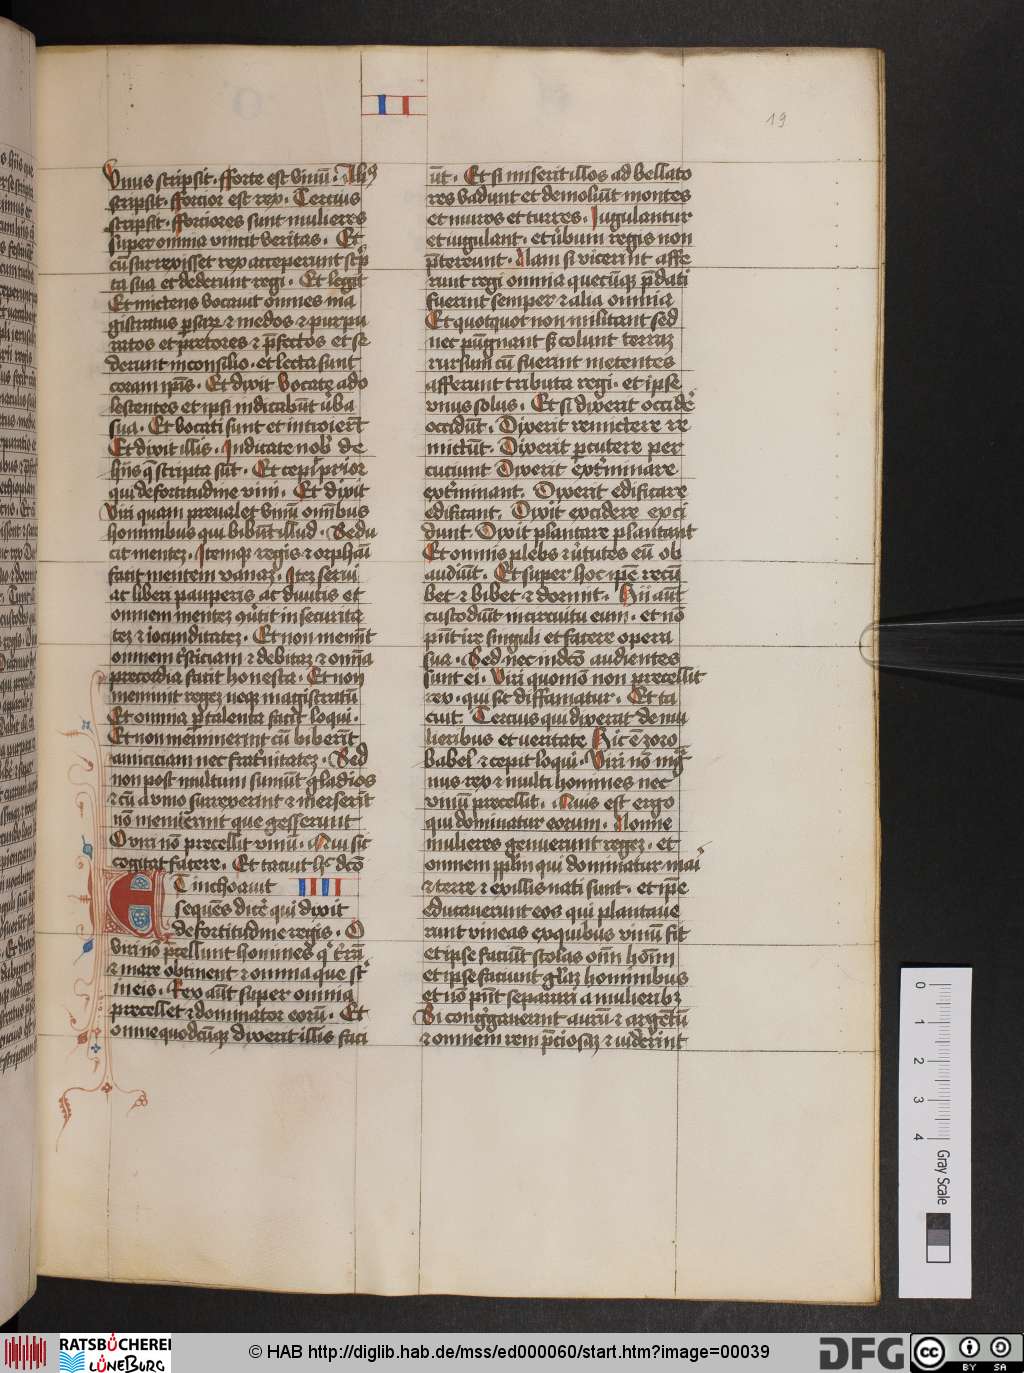 II
19
Vnus scripsit. fforte est vinū. Alius
scripsit. fforcior est rex. Tercius
scripsit. fforciores sunt mulieres
super omnia vincit veritas. Et
cū surrexisset rex acceperunt scp̄
ta sua et dederunt regi. Et legit
Et mictens vocauit omnes ma
gistratus p̄sarꝝ ⁊ medos ⁊ purpu
ratos et p̄tores ⁊ p̄fectos et se
derunt in consilio. et lecta sunt
coram ip̄is. Et dixit vocate ado
lescentes et ipsi indicabūt v̄ba
sua. Et vocati sunt et introierūt
Et dixit illis. Indicate nob̄ de
hijs q̄ scripta sūt. Et cepit prior
qui de fortitudine vini. Et dixit
Viri quam preualet vinū omībus
hominibus qui bibūt illud. Sedu
cit mentez. Itemqꝫ regis ⁊ orphāi
facit mentem vanaꝫ. Iteꝫ serui
ac liberi pauperis ac diuitis et
omnem mentez v̄tit in securita
tez ⁊ iocunditatez. Et non memīt
omnem t̄sticiam ⁊ debitaꝫ ⁊ omīa
precordia facit honesta. Et non
meminit regez neqꝫ magistratū
Et omnia p̄ talenta facit loqui.
Et non meminerint cū biberīt
amiciciam nec frat̄nitatez. Sed
non post multum sumūt gladios
⁊ cū a vino surrexerint ⁊ merserīt
nō meminerint que gesserunt
O viri nō precellit vinū. Qui sic
cogitat facere. Et tacuit h̄ dcō
Et inchoauit IIII
sequēs dic̄e qui dixit
de fortitudine regis. O
viri nō p̄cellunt homines qͥ t̄rā
⁊ mare obtinent ⁊ omnia que sūt
in eis. Rex aūt super omnia
precellet ⁊ dominatur eorū. Et
omne quodcūqꝫ dixerit illis faci
ūt. Et si miserit illos ad bellato
res vadunt et demoliūt montes
et muros et turres. Iugulantur
et iugulant. et v̄bum regis non
p̄tereunt. Nam si vicerint affe
runt regi omnia quecūqꝫ p̄dati
fuerint semper ⁊ alia omnia
Et quotquot non militant sed
nec pūgnant sꝫ colunt terraꝫ
rursum cū fuerint metentes
afferunt tributa regi. et ipse
vnus solus. Et si dixerit occide
occidūt. Dixerit remictere re
mictūt. Dixerit p̄cutere per
cuciunt Dixerit ext̄minare
ext̄minant. Dixerit edificare
edificant. Dixit excidere exci
dunt. Dixit plantare plantant
Et omnis plebs ⁊ v̄tutes eū ob
audiūt. Et super hoc ip̄e recū
bet ⁊ bibet ⁊ dormit. Hii aūt
custodiūt in circuitu eum. et nō
pn̄t ire singuli et facere opera
sua. Sed nec in dcō audientes
sunt ei. Viri quomō non precellit
rex. qui sic diffamatur. Et ta
cuit. Tercius qui dixerat de mu
lieribus et veritate Hic ē zoro
babel ⁊ cepit loqui. Viri nō mag
nus rex ⁊ multi homines nec
vinū precellit. Quis est ergo
qui dominatur eorum. Nonne
mulieres genuerunt regez. et
omnem pplm̄ qui dominatur mar̄
⁊ terre ⁊ ex illis nati sunt. et ip̄e
educauerunt eos qui plantaue
runt vineas ex quibus vinū fit
et ipse faciūt stolas om̄ hom̄
et ipse faciunt gl̄iaꝫ hominibus
et nō pn̄t separari a mulieribꝫ
Si congͣgauerint aurū ⁊ argētū
⁊ omnem rem p̄ciosaꝫ ⁊ viderint
0
1
2
3
4
Gray Scale
RATSBÜCHEREI
LÜNEBURG
© HAB http://diglib.hab.de/mss/ed000060/start.htm?image=00039
DFG
cc
BY SA